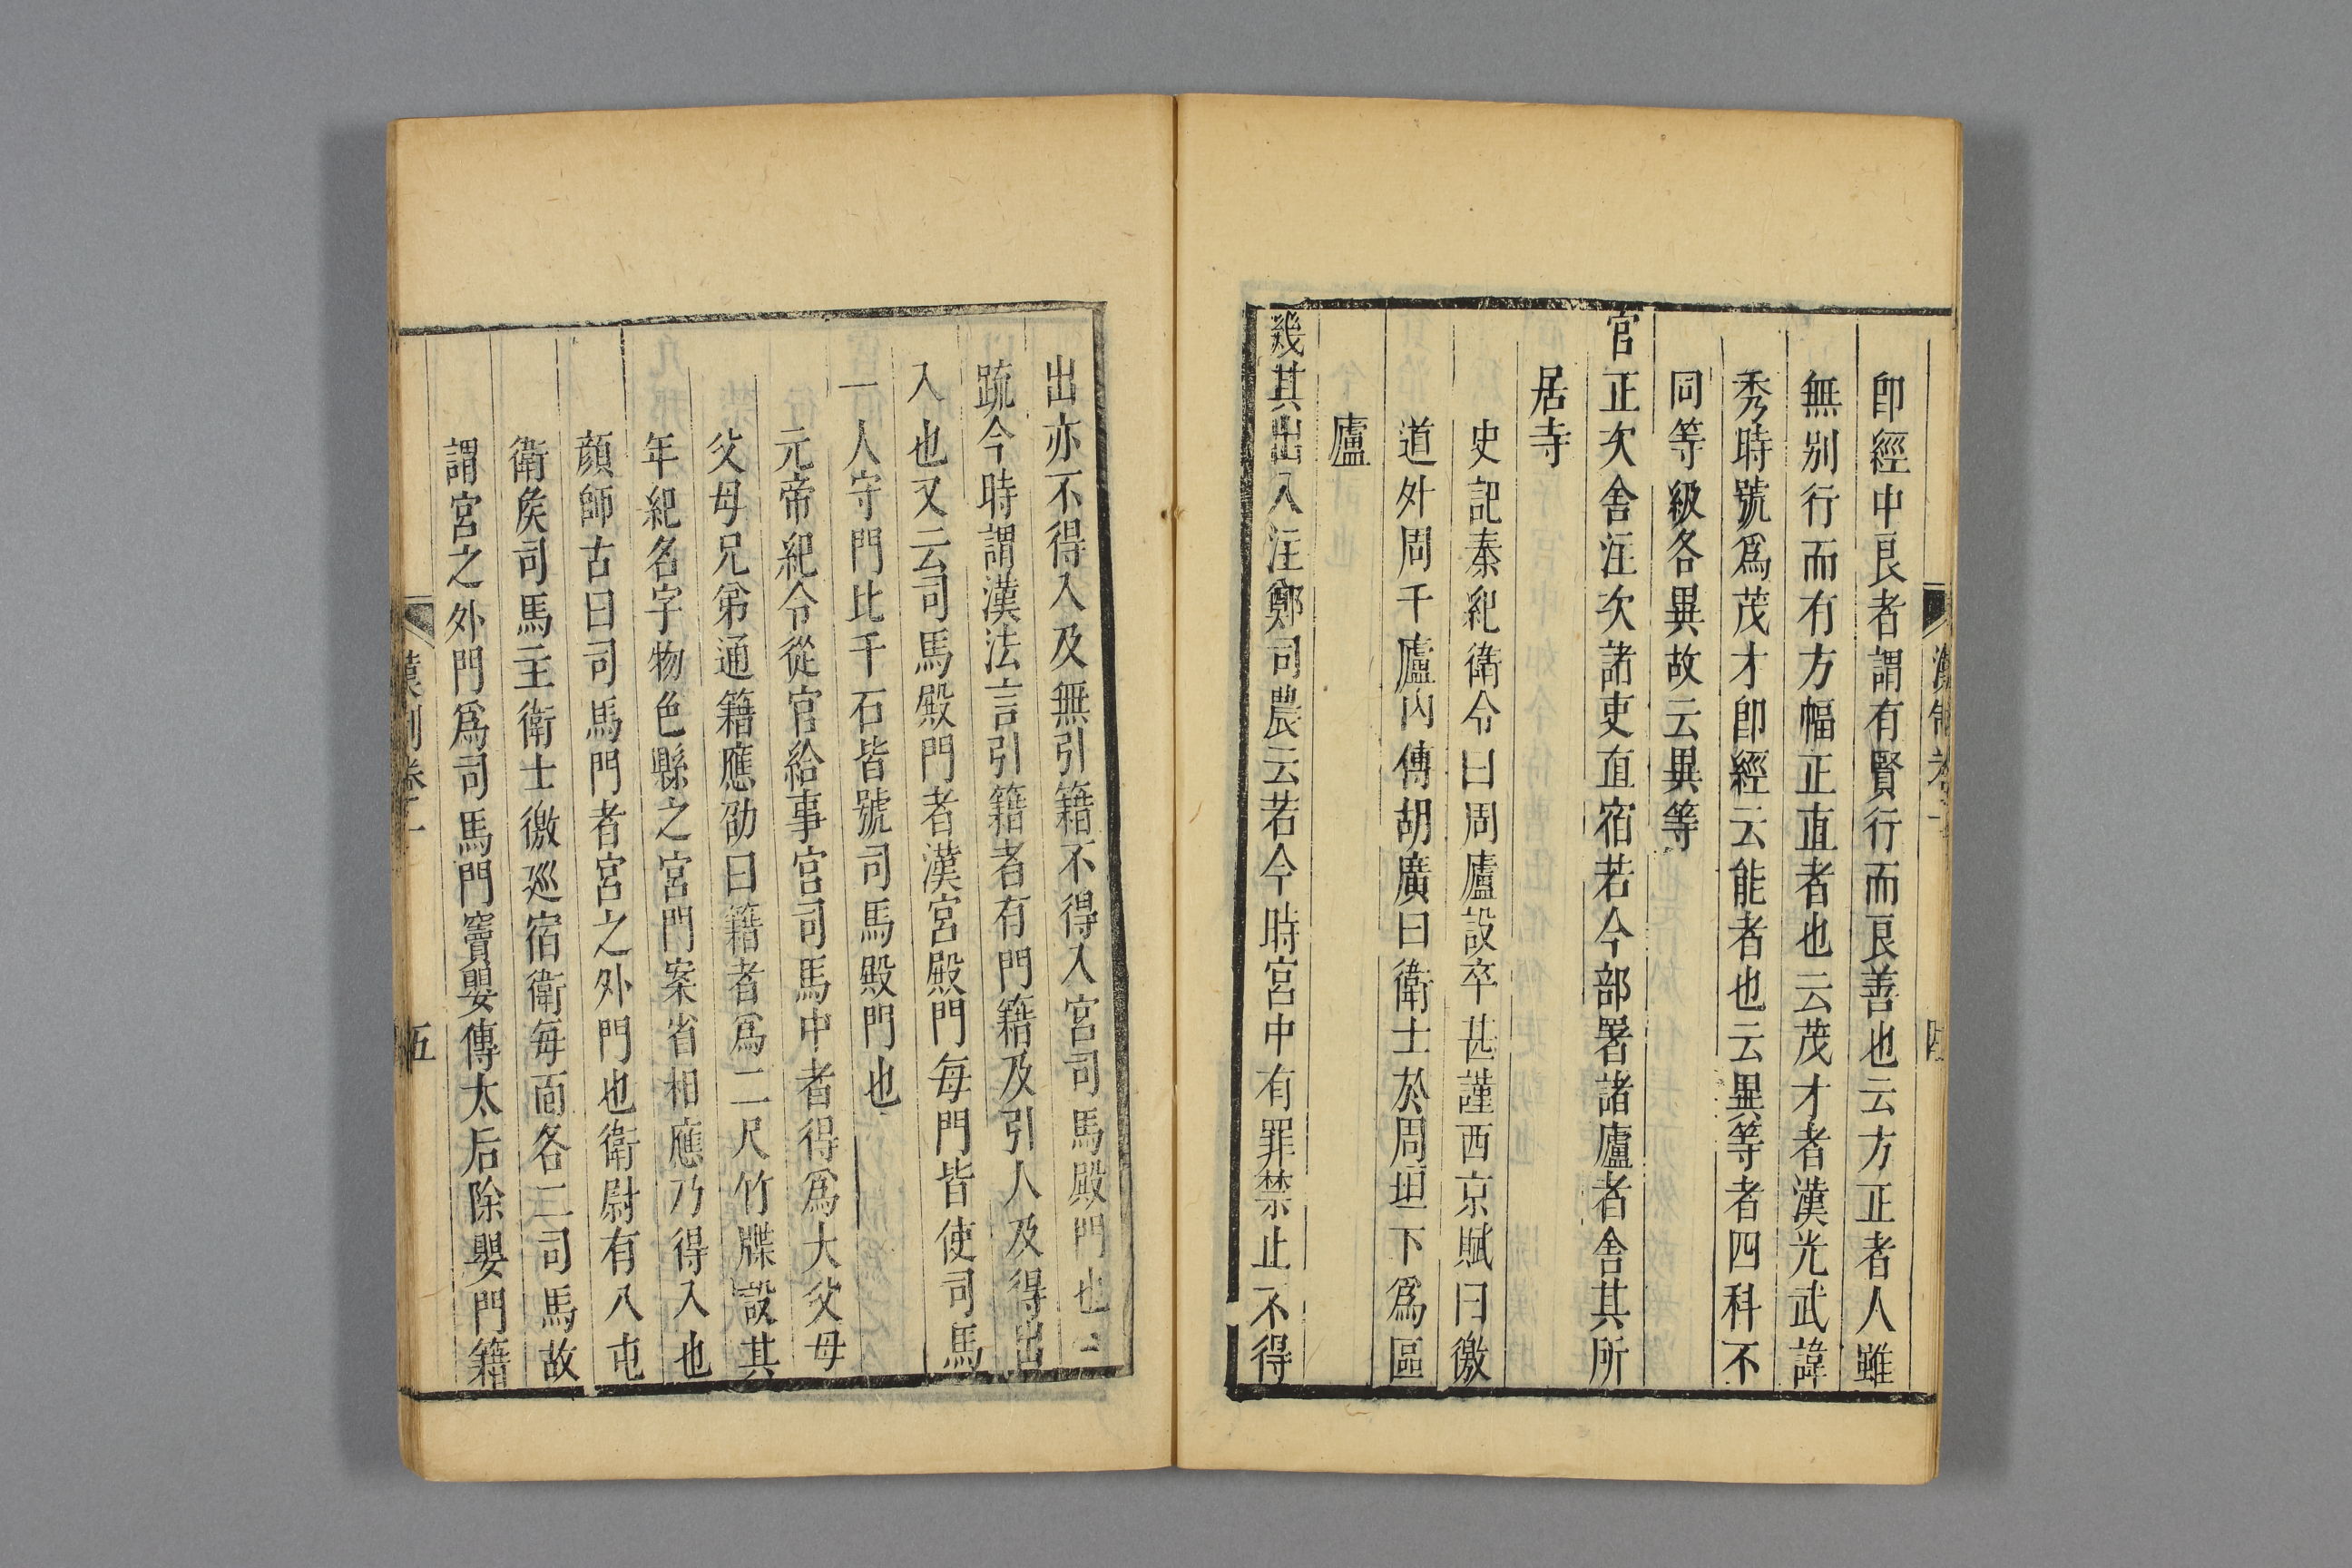 即經中良者謂有賢行而良善也云方正者人雖
無别行而有方幅正直者也云茂才者漢光武諱
秀時號爲茂才即經云能者也云異等者四科不
同等級各異故云異等
官正次舍注次諸吏直宿若今部署諸廬者舍其所
居寺
史記秦紀衛令曰周廬設卒甚謹西京賦曰徼
道外周千廬内傳胡廣曰衛士於周垣下爲區
廬
幾其出入注鄭司農云若今時宮中有罪禁止不得
出亦不得入及無引籍不得入宮司馬殿門也
疏今時謂漢法言引籍者有門籍及引人及得出
入也又云司馬殿門者漢宮殿門每門皆使司馬
一人守門比千石皆號司馬殿門也
元帝紀令從官給事宮司馬中者得爲大父母
父母兄弟通籍應劭曰籍者爲二尺竹牒設其
年紀名字物色縣之宮門案省相應乃得入也
顔師古曰司馬門者宮之外門也衛尉有八屯
衛矦司馬主衛士徼巡宿衛每面各二司馬故
謂宮之外門爲司馬門竇嬰傳太后除嬰門籍
五